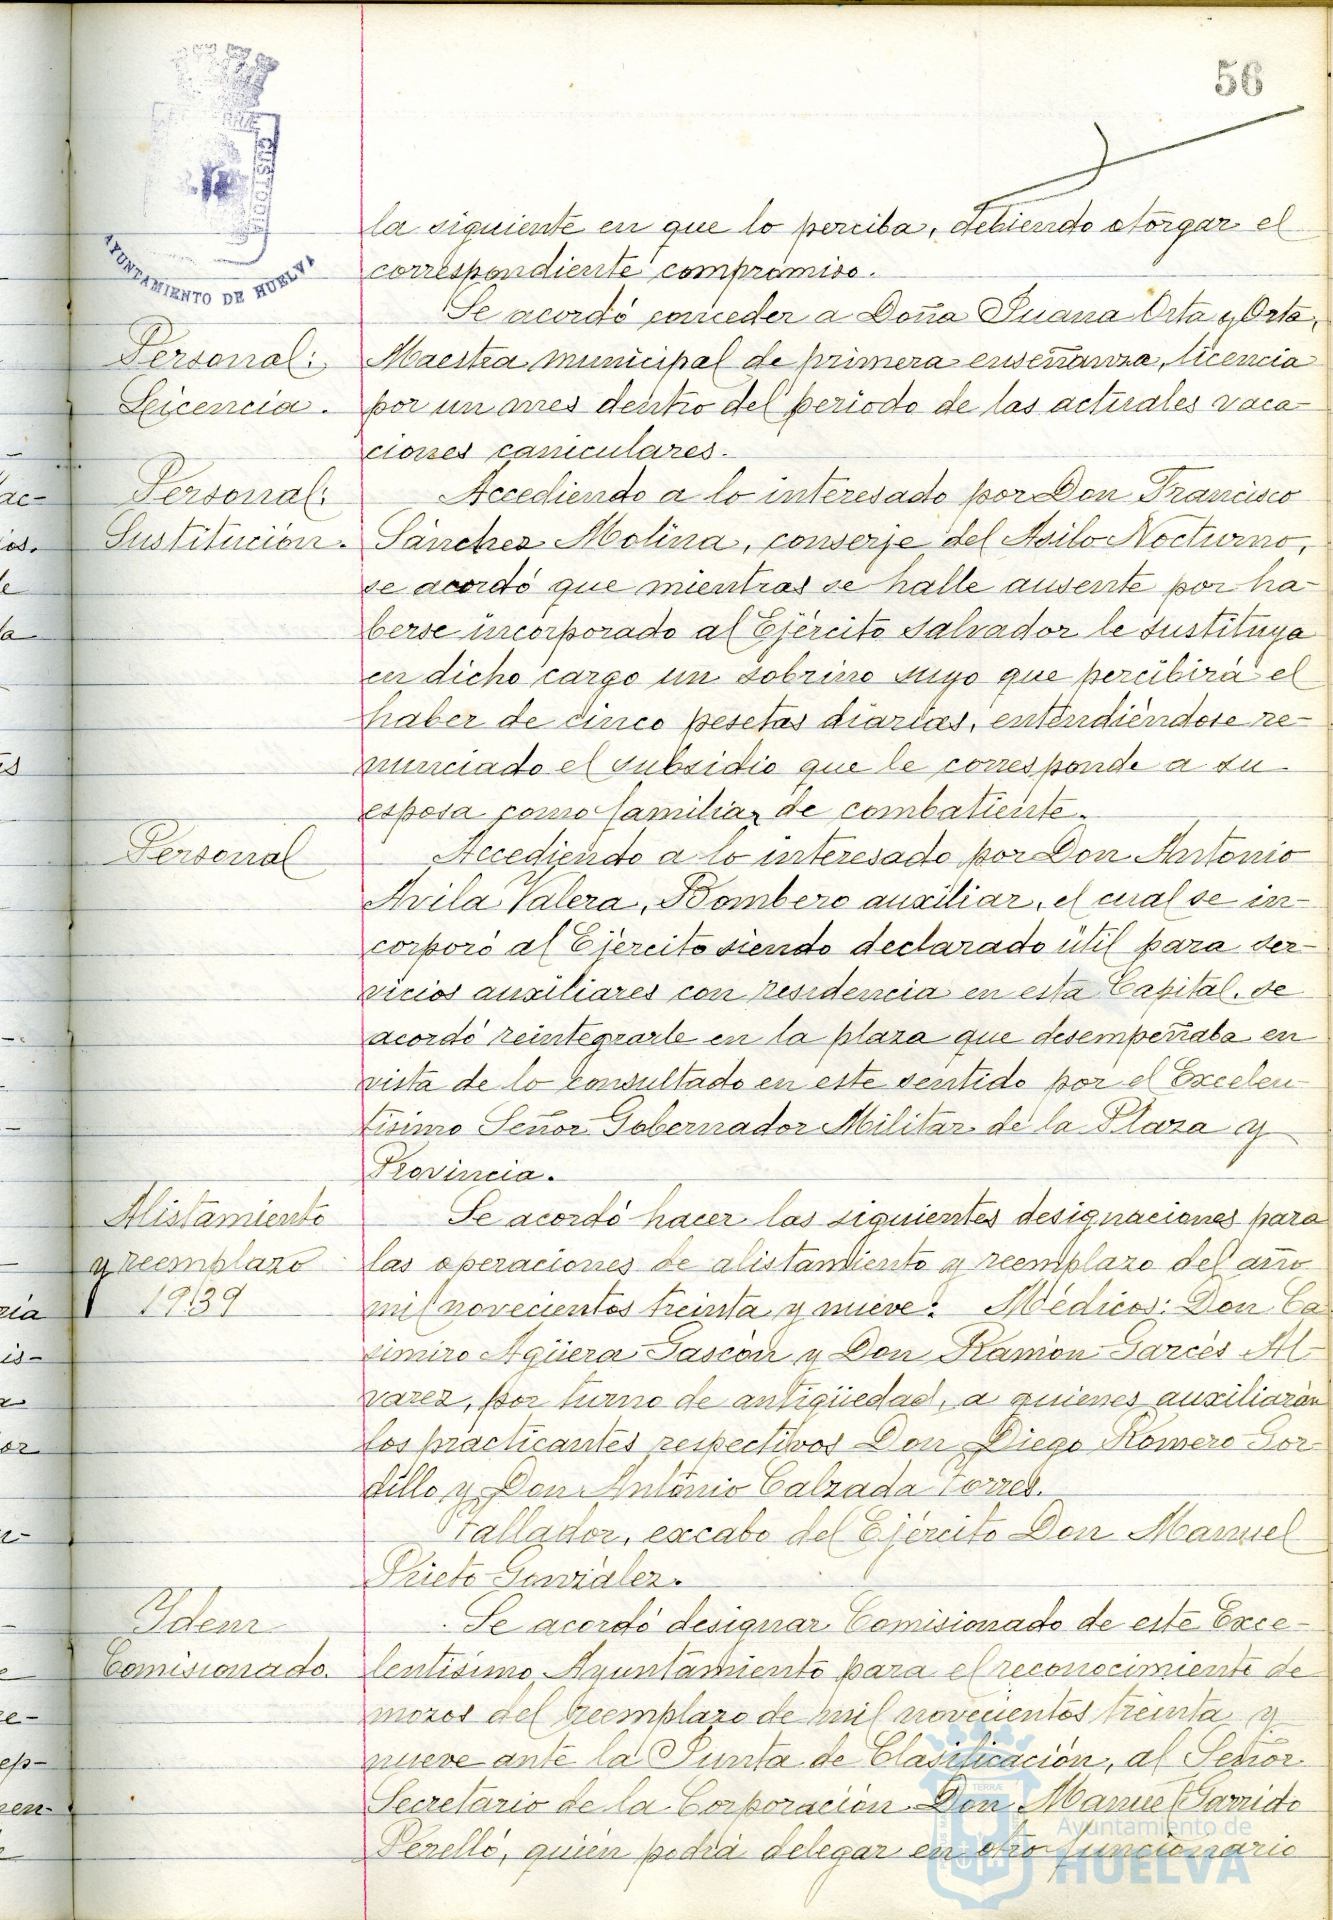 56
RRÆ CUSTODIA
AYUNTAMIENTO DE HUELVA
la siguiente en que lo perciba, debiendo otorgar el
correspondiente compromiso.
Personal:
Licencia.
Se acordó conceder a Doña Juana Orta y Orta,
Maestra municipal de primera enseñanza, licencia
por un mes dentro del período de las actuales vaca-
ciones caniculares.
Personal:
Sustitución.
Accediendo a lo interesado por Don Francisco
Sánchez Molina, conserje del Asilo Nocturno,
se acordó que mientras se halle ausente por ha-
berse incorporado al Ejército salvador le sustituya
en dicho cargo un sobrino suyo que percibirá el
haber de cinco pesetas diarias, entendiéndose re-
nunciado el subsidio que le corresponde a su
esposa como familiar de combatiente.
Personal
Accediendo a lo interesado por Don Antonio
Avila Valera, Bombero auxiliar, el cual se in-
corporó al Ejército siendo declarado útil para ser-
vicios auxiliares con residencia en esta Capital, se
acordó reintegrarle en la plaza que desempeñaba en
vista de lo consultado en este sentido por el Excelen-
tísimo Señor Gobernador Militar de la Plaza y
Provincia.
Alistamiento
y reemplazo
1939
Se acordó hacer las siguientes designaciones para
las operaciones de alistamiento y reemplazo del año
mil novecientos treinta y nueve: Médicos: Don Ca
simiro Agüera Gascón y Don Ramón Garcés Al-
varez, por turno de antigüedad, a quienes auxiliarán
los practicantes respectivos Don Diego Romero Gor-
dillo y Don Antonio Calzada Torres.
Tallador, excabo del Ejército Don Manuel
Prieto González.
Ydem
Comisionado.
Se acordó designar Comisionado de este Exce-
lentísimo Ayuntamiento para el reconocimiento de
mozos del reemplazo de mil novecientos treinta y
nueve ante la Junta de Clasificación, al Señor
Secretario de la Corporación Don Manuel Garrido
Perelló, quién podrá delegar en otro funcionario
Ayuntamiento de
HUELVA